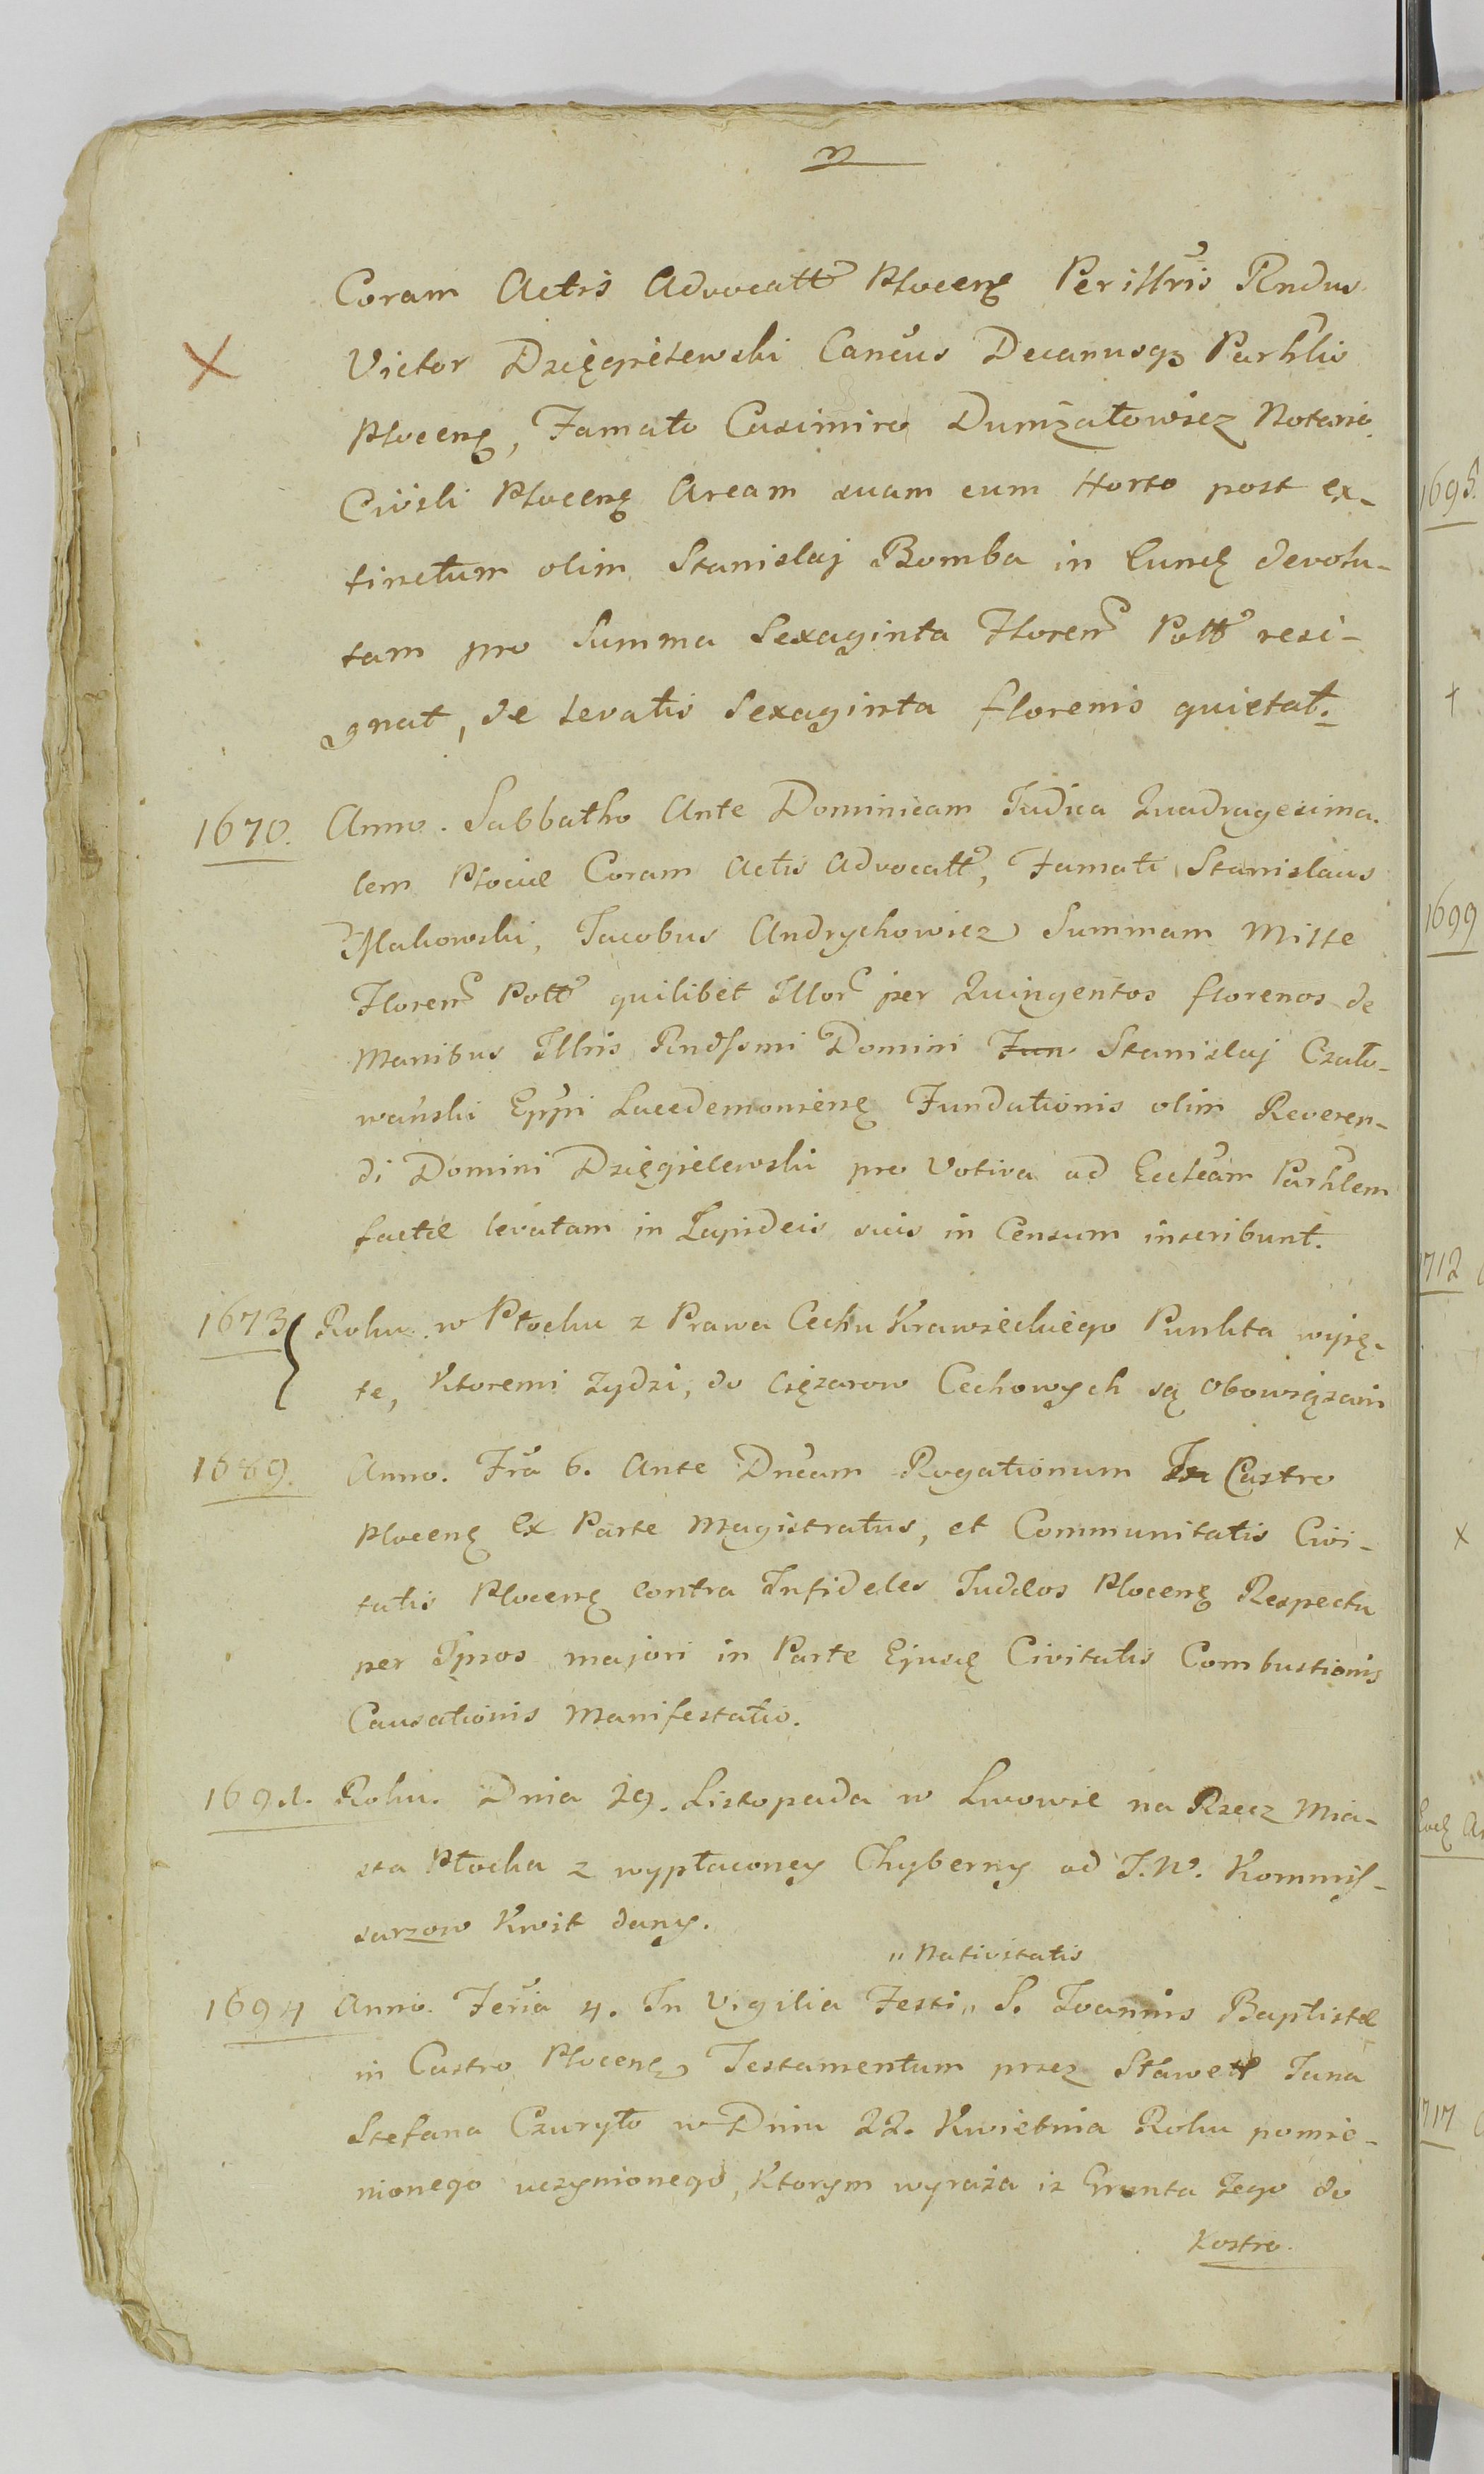 Coram Actis Advocatt Plocen Perillris Rndus
Victor Dzięgielewski Cancus Decanusq Parhlis
Plocen, Famato Casimiro Dumżałowicz Notario
Civili Plocen Aream suam cum Horto post ex-
tinctum olim Stanislaj Bomba in Eund devolu-
tam pro Summa Sexaginta Floren Poll resi-
gnat, de levatis Sexaginta florenis quietat.
1670. Anno. Sabbatho Ante Dominicam Judica Quadragesima-
lem Plociæ Coram Actis Advocatt, Famati Stanislaus
Makowski, Jacobus Andrychowicz Summam Mille
Floren Poll quilibet Illor per Quingentos florenos de
Manibus Illris Rndssmi Domini Stanislaj Czało-
wański Eppi Lacedemonien Fundationis olim Reveren-
di Domini Dzięgielewski pro Votiva ad Eccleam Parhlem
factæ levatam in Lapideis suis in Censum inscribunt.
1673 Roku w Płocku z Prawa Cechu Krawieckiego Punkta wyię-
te, Ktoremi Zydzi, do Ciężarow Cechowych są Obowiązani
1689. Anno. Fra 6. Ante Dncam Rogationum In Castro
Plocen Ex Parte Magistratus, et Communitatis Civi-
tatis Plocen Contra Infideles Judæos Plocen Respectu
per Ipsos majori in Parte Ejusd Civitatis Combustionis
Causationis Manifestatio.
Roku. Dnia 29. Listopada w Lwowie na Rzecz Mia-
sta Płocka z wypłaconey Chyberny od J.W. Kommis-
sarzow Kwit dany.
" Nativitatis
1694 Anno. Feria 4. In Vigilia Festi " S. Joannis Baptistæ
in Castro Plocen Testamentum przez Sławett Jana
Stefana Czuryło w Dniu 22. Kwietnia Roku pomie-
nionego uczynionego, Ktorym wyraża iz Grunta Jego do
Kostro.
1695.
1699
1712
1717